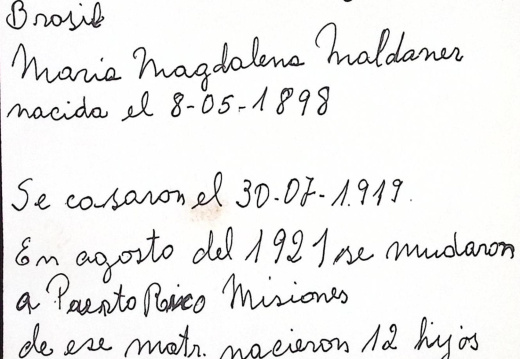 Brasil
Maria Magdalena Maldaner
nacida el 8-05-1898
Se casaron el 30-07-1.919.
En agosto del 1921 se mudaron
a Puerto Rico Misiones
de ese matr. nacieron 12 hijos